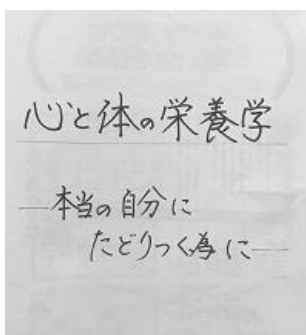 心と体の栄養学
―本当の自分に
たどりつく為に―